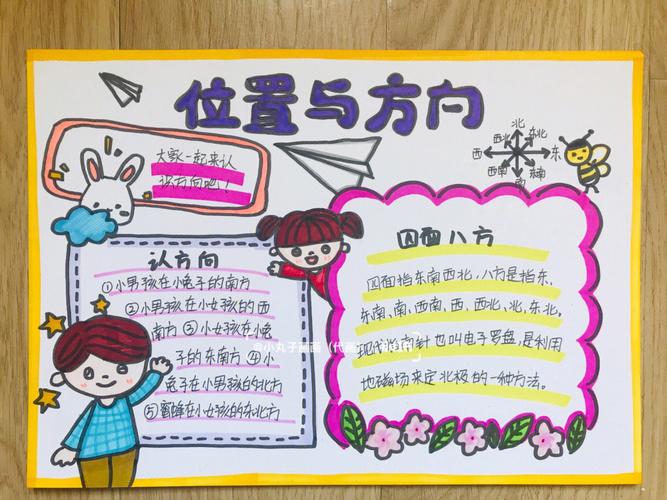 位置与方向
大家一起来认
识方向吧！
北
东北
东
东南
南
西南
西
认方向
①小男孩在小兔子的南方
②小男孩在小女孩的西
南方 ③小女孩在小兔
子的东南方 ④小
兔子在小男孩的北方
⑤蜜蜂在小女孩的东北方
四面八方
四面指东南西北，八方是指东、
东南、南、西南、西、西北、北、东北。
针也叫电子罗盘，是利用
地磁场来定北极的一种方法。
@小丸子画画（代画